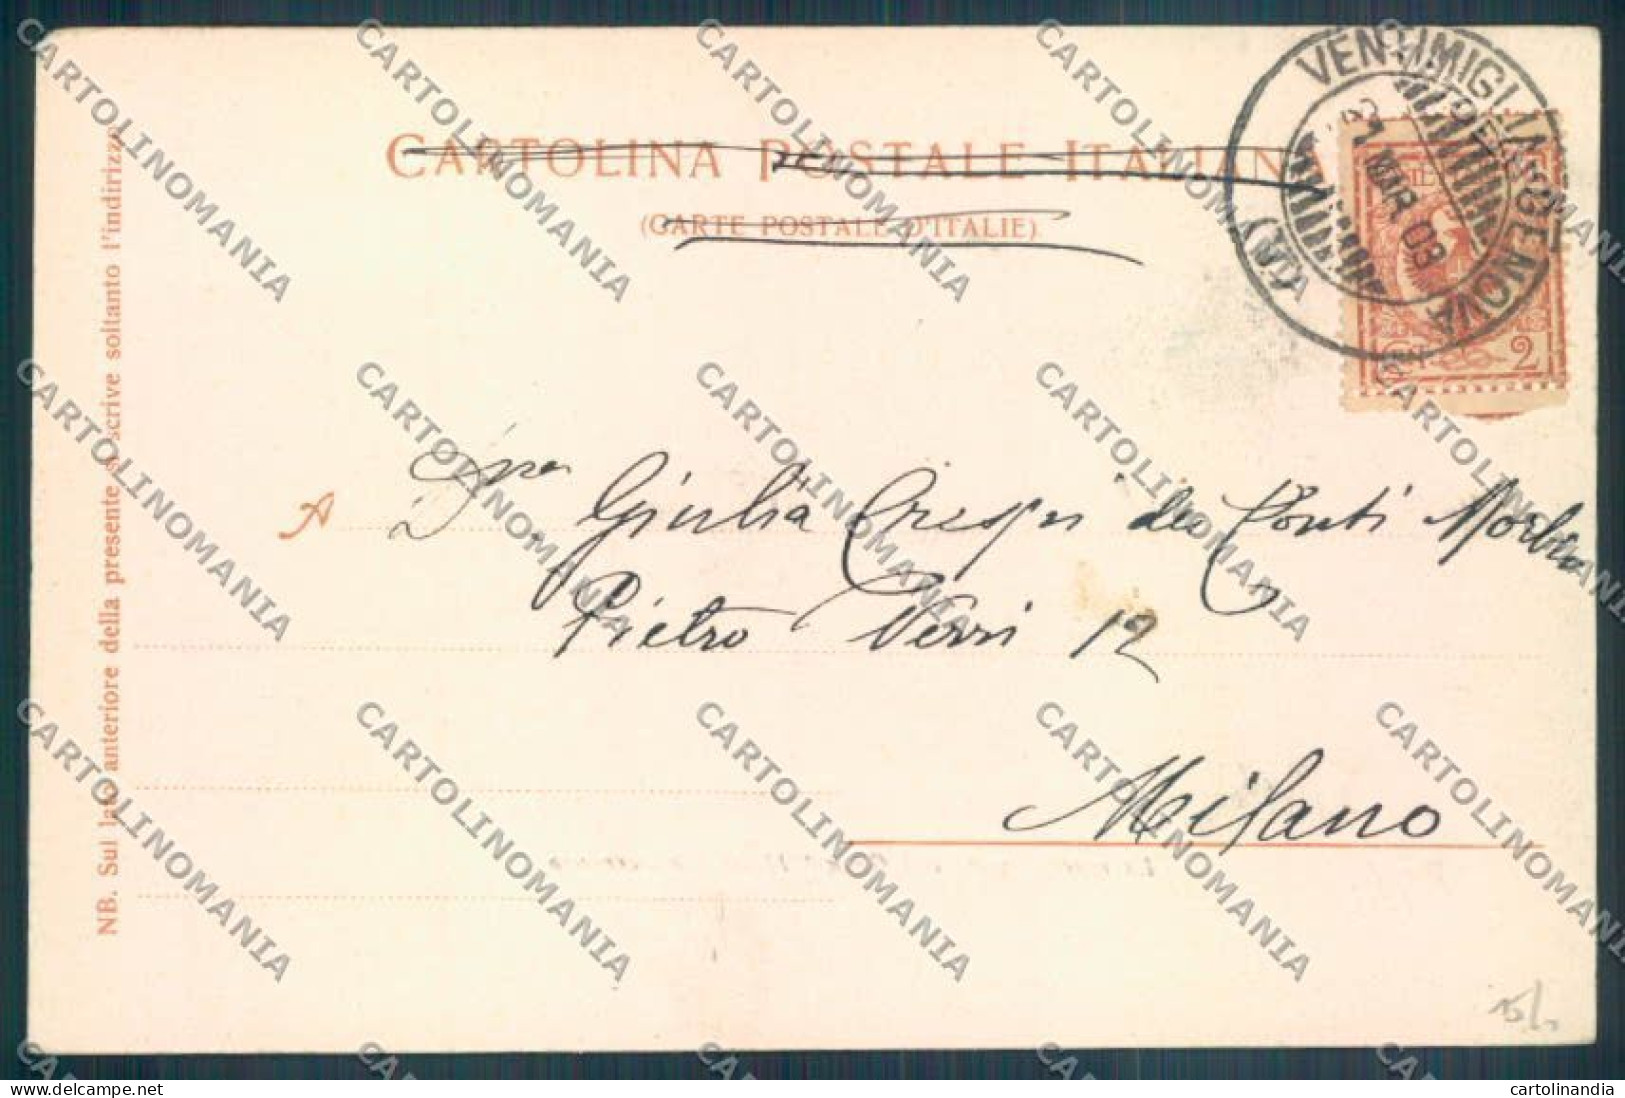 CARTOLINA POSTALE ITALIANA
(CARTE POSTALE D'ITALIE)
VENTIMIGLIA GENOVA
21 MAR. 03
2
A
Giulia Crespi dei Conti
Pietro Verri 12
Milano
NB. Sul lato anteriore della presente si scrive soltanto l'indirizzo
CARTOLINOMANIA
delcampe.net
cartolinandia